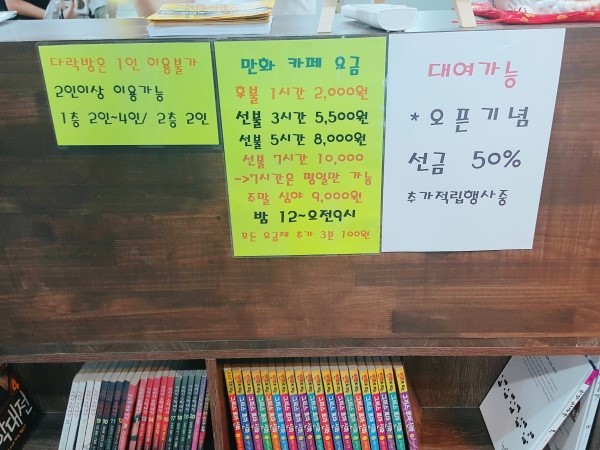 다락방은 1인 이용불가
2인이상 이용가능
1층 2인~4인/ 2층 2인
만화 카페 요금
후불 1시간 2,000원
선불 3시간 5,500원
선불 5시간 8,000원
선불 7시간 10,000
->7시간은 평일만 가능
주말 심야 9,000원
밤 12~오전9시
모든 요금제 추가 3분 100원
대여가능
* 오픈기념
선금 50%
추가적립행사중